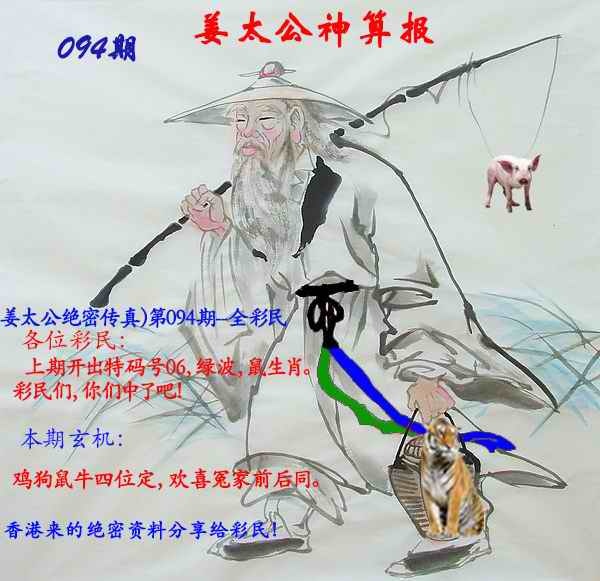 姜太公神算报
094期
姜太公绝密传真)第094期--全彩民
各位彩民:
上期开出特码号06,绿波,鼠生肖。
彩民们,你们中了吧!
本期玄机:
鸡狗鼠牛四位定,欢喜冤家前后同。
香港来的绝密资料分享给彩民!